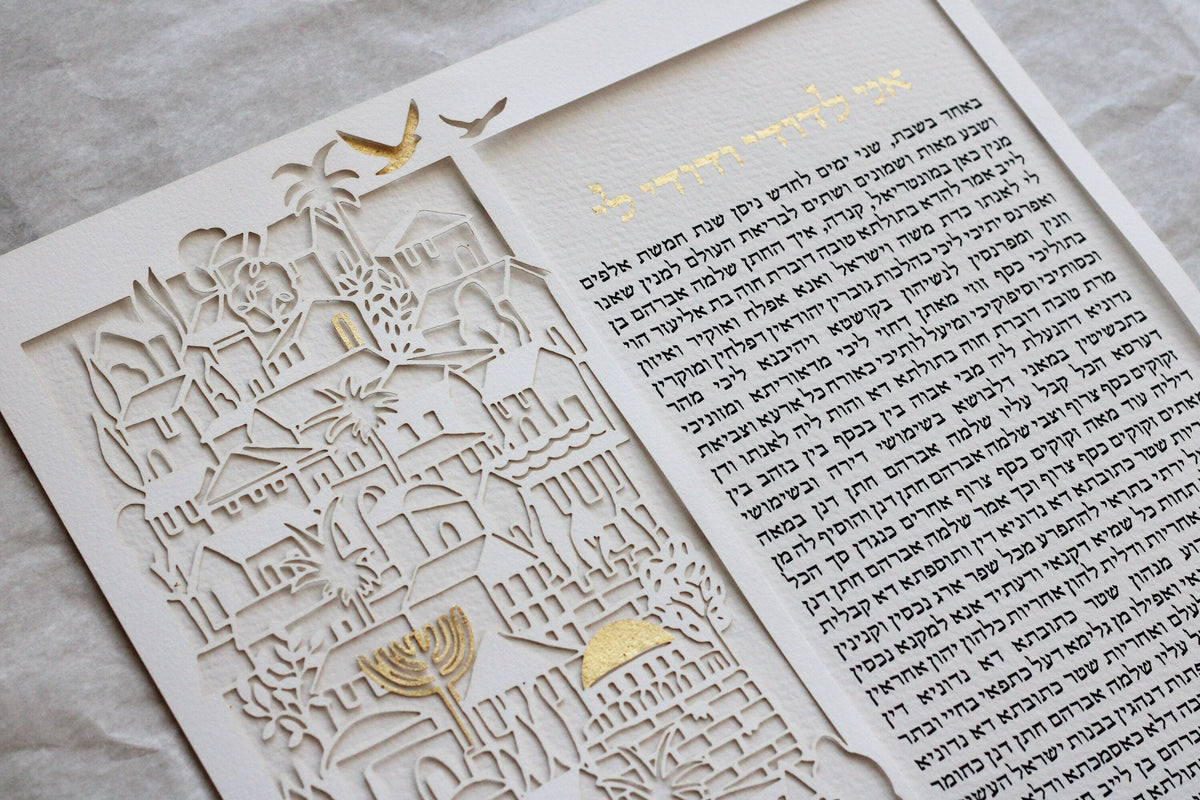 אני לדודי ודודי לי
באחד בשבת, שני ימים לחדש ניסן שנת חמשת אלפים
ושבע מאות ושמונים ושתים לבריאת העולם למנין שאנו
מנין כאן במונטריאל קנדה, איך החתן שלמה אברהם בן
לייב אמר להדא בתולתא טובה דוברת חוה בת אליעזר הוי
לי לאנתו כדת משה וישראל ואנא אפלח ואוקיר ואיזון
ואפרנס יתיכי ליכי כהלכות גוברין יהודאין דפלחין ומוקרין
וזנין ומפרנסין לנשיהון בקושטא ויהיבנא ליכי מהר
בתוליכי כסף זוזי מאתן דחזי ליכי מדאוריתא ומזוניכי
וכסותיכי וסיפוקיכי ומיעל לותיכי כאורח כל ארעא וצביאת
מרת טובה דוברת חוה בתולתא דא והות ליה לאנתו ודן
נדוניא דהנעלת ליה מבי אבוה בין בכסף בין בזהב בין
בתכשיטין במאני דלבושא בשימושי דירה ובשימושי
דערסא הכל קבל עליו שלמה אברהם חתן דנן במאה
זקוקים כסף צרוף וצבי שלמה אברהם חתן דנן והוסיף לה מן
דיליה עוד מאה זקוקים כסף צרוף אחרים כנגדן סך הכל
מאתים זקוקים כסף צרוף וכך אמר שלמה אברהם חתן דנן
אחריות שטר כתובתא דא נדוניא דין ותוספתא דא קבלית
על ירתי בתראי להתפרע מכל שפר ארג נכסין וקנינין
תחות כל שמיא דקנאי ודעתיד אנא למקנא נכסין
אחריות ודלית להון אחריות כלהון יהון אחראין
מנהון שטר כתובתא דא נדוניא דין
ואפילו מן גלימא דעל כתפאי בחיי ובתר
ואחריות שטר כתובתא דא נדוניא
עליו שלמה אברהם חתן דנן כחומר
דנהגין בבנות ישראל העשוין
דלא כאסמכתא ודלא
בן לייב